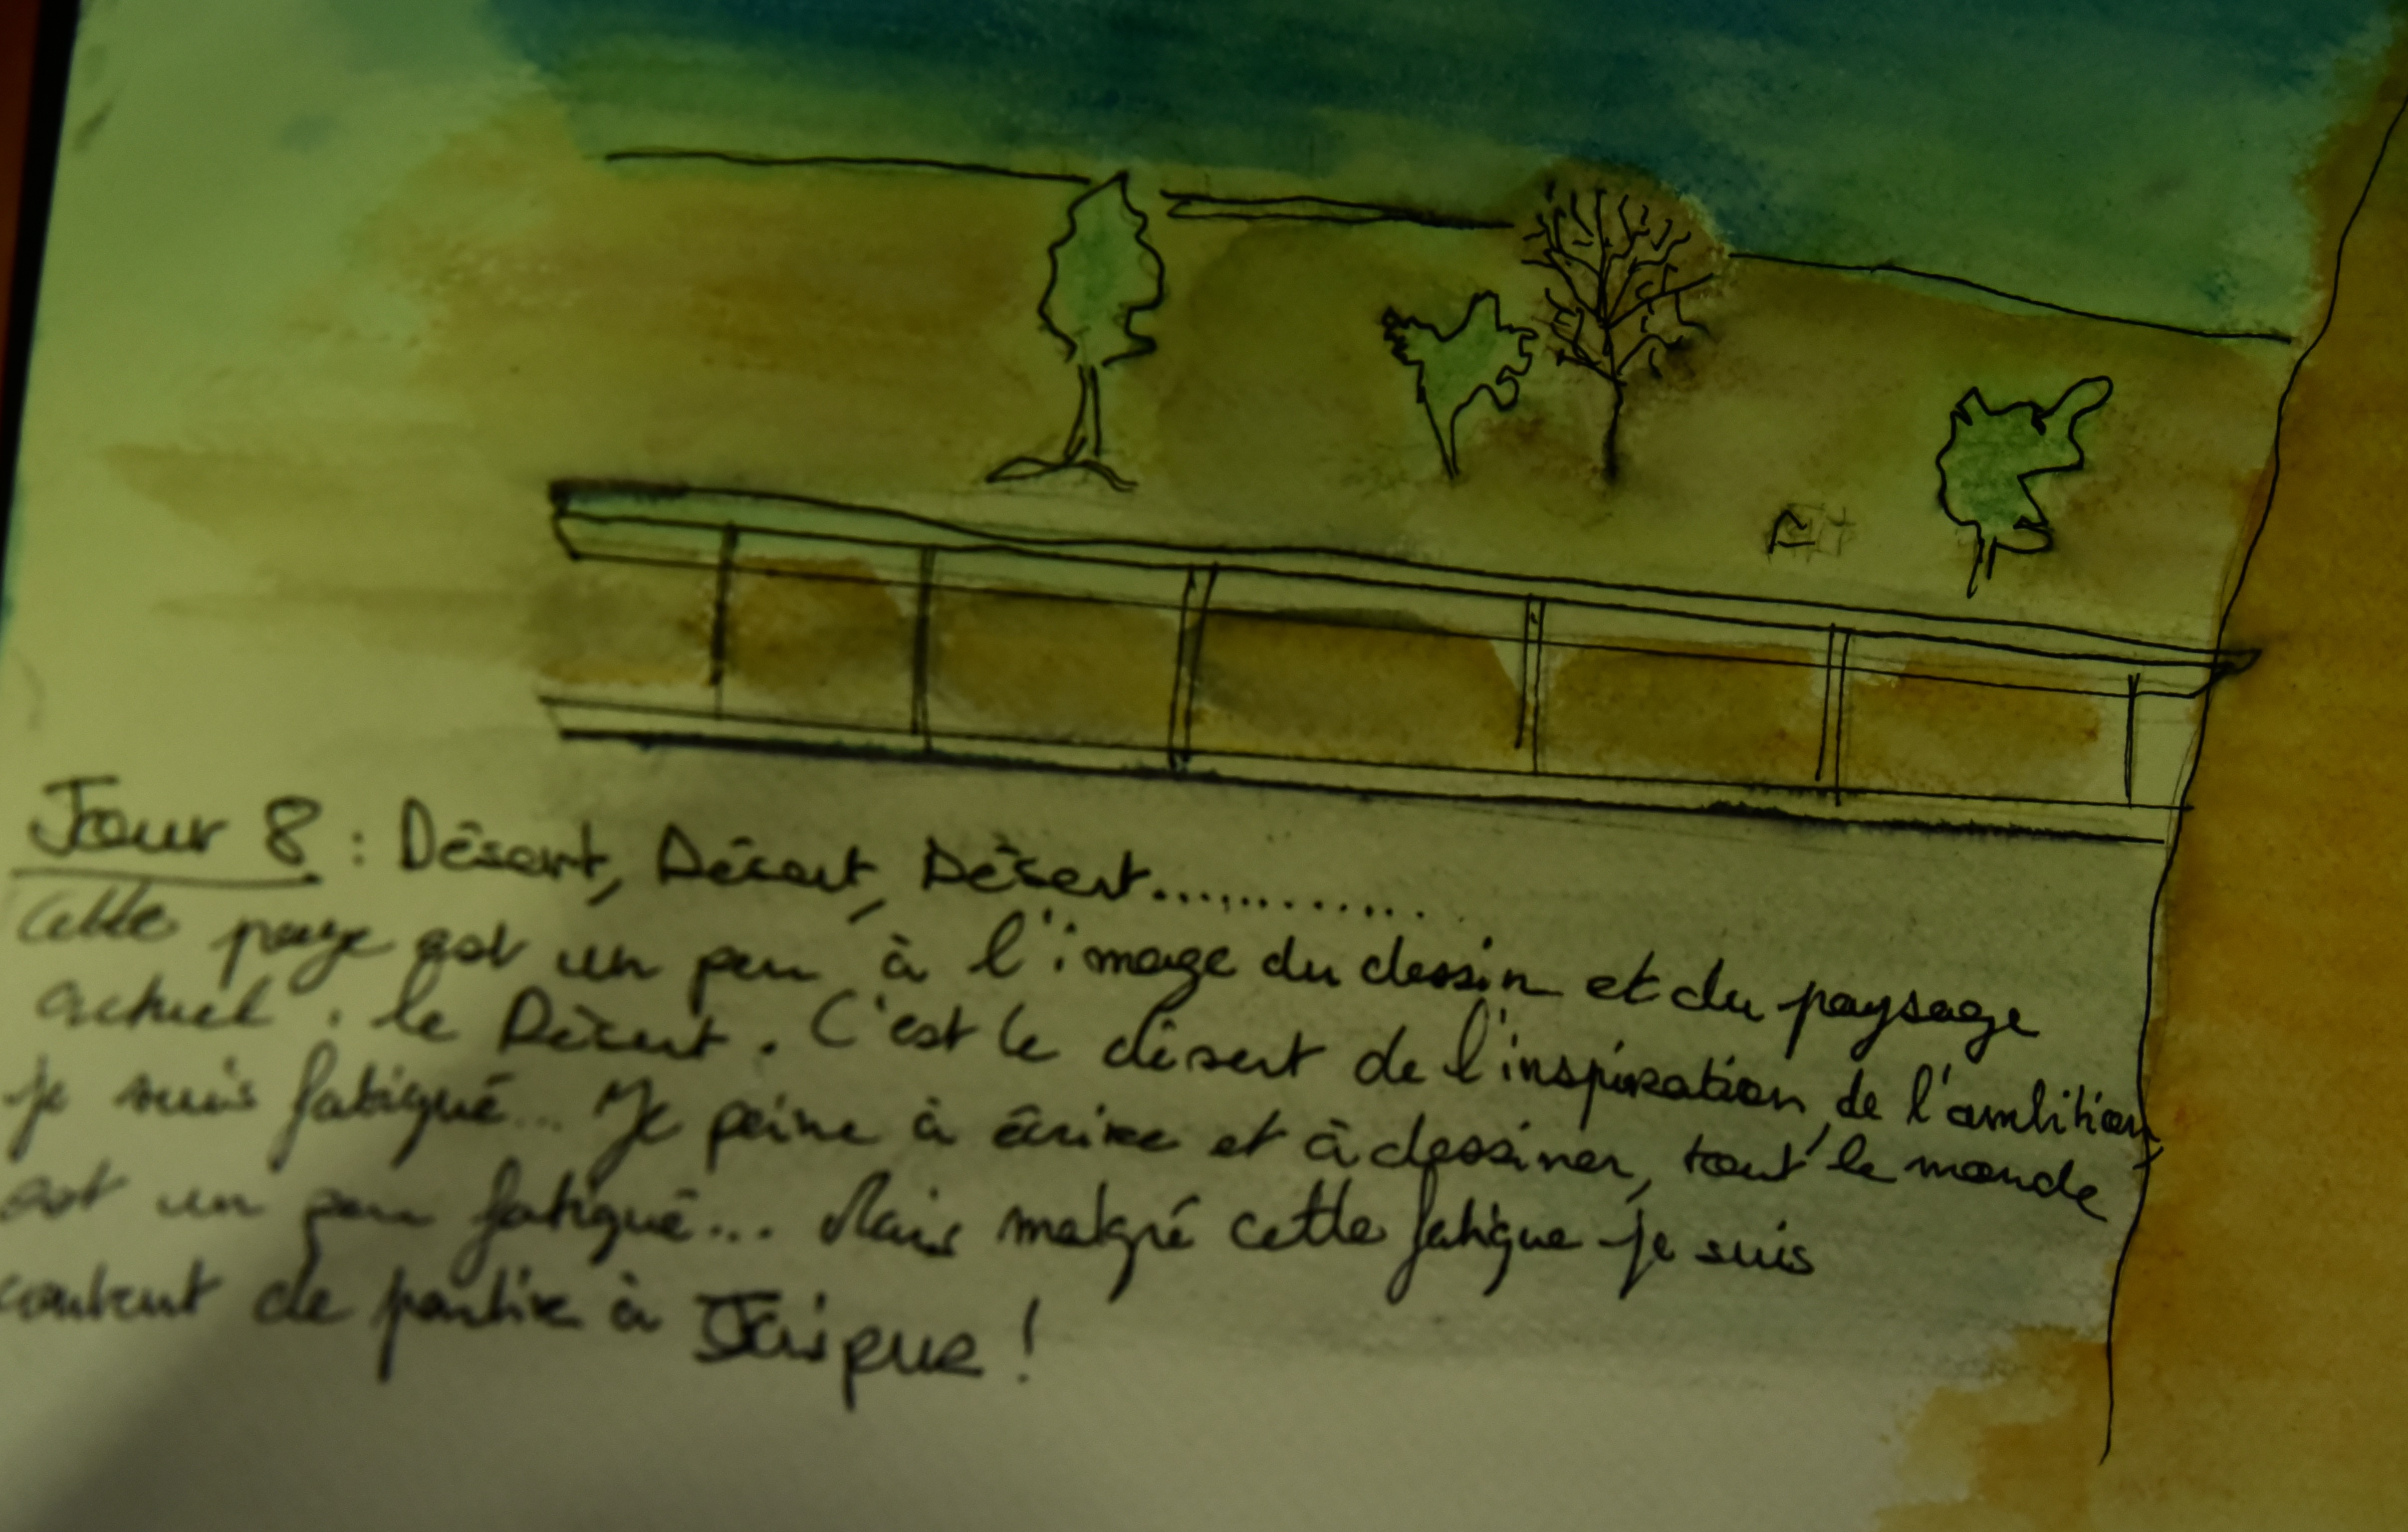 Jour 8 : Désert, Désert, Désert..............
Cette page est un peu à l'image du dessin et du paysage
actuel : le Désert. C'est le désert de l'inspiration, de l'ambition,
je suis fatigué... Je peine à écrire et à dessiner, tout le monde
est un peu fatigué... Mais malgré cette fatigue je suis
content de partir à Jaipur !